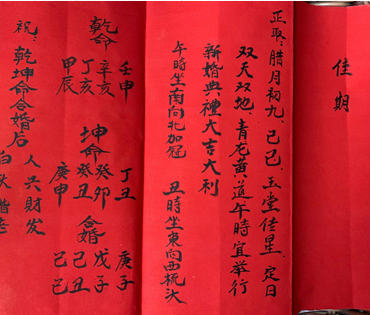 佳期
正取:腊月初九、己巳、玉堂佳星、定日
双天双地、青龙黄道午時宜举行
新婚典禮大吉大利
午時坐南向北加冠 丑時坐東向西梳头
乾命
壬申
辛亥
丁亥
甲辰
坤命
丁丑
癸卯
癸丑
庚申
合婚
庚子
戊子
己丑
己巳
祝:乾坤命合婚后
人兴財发